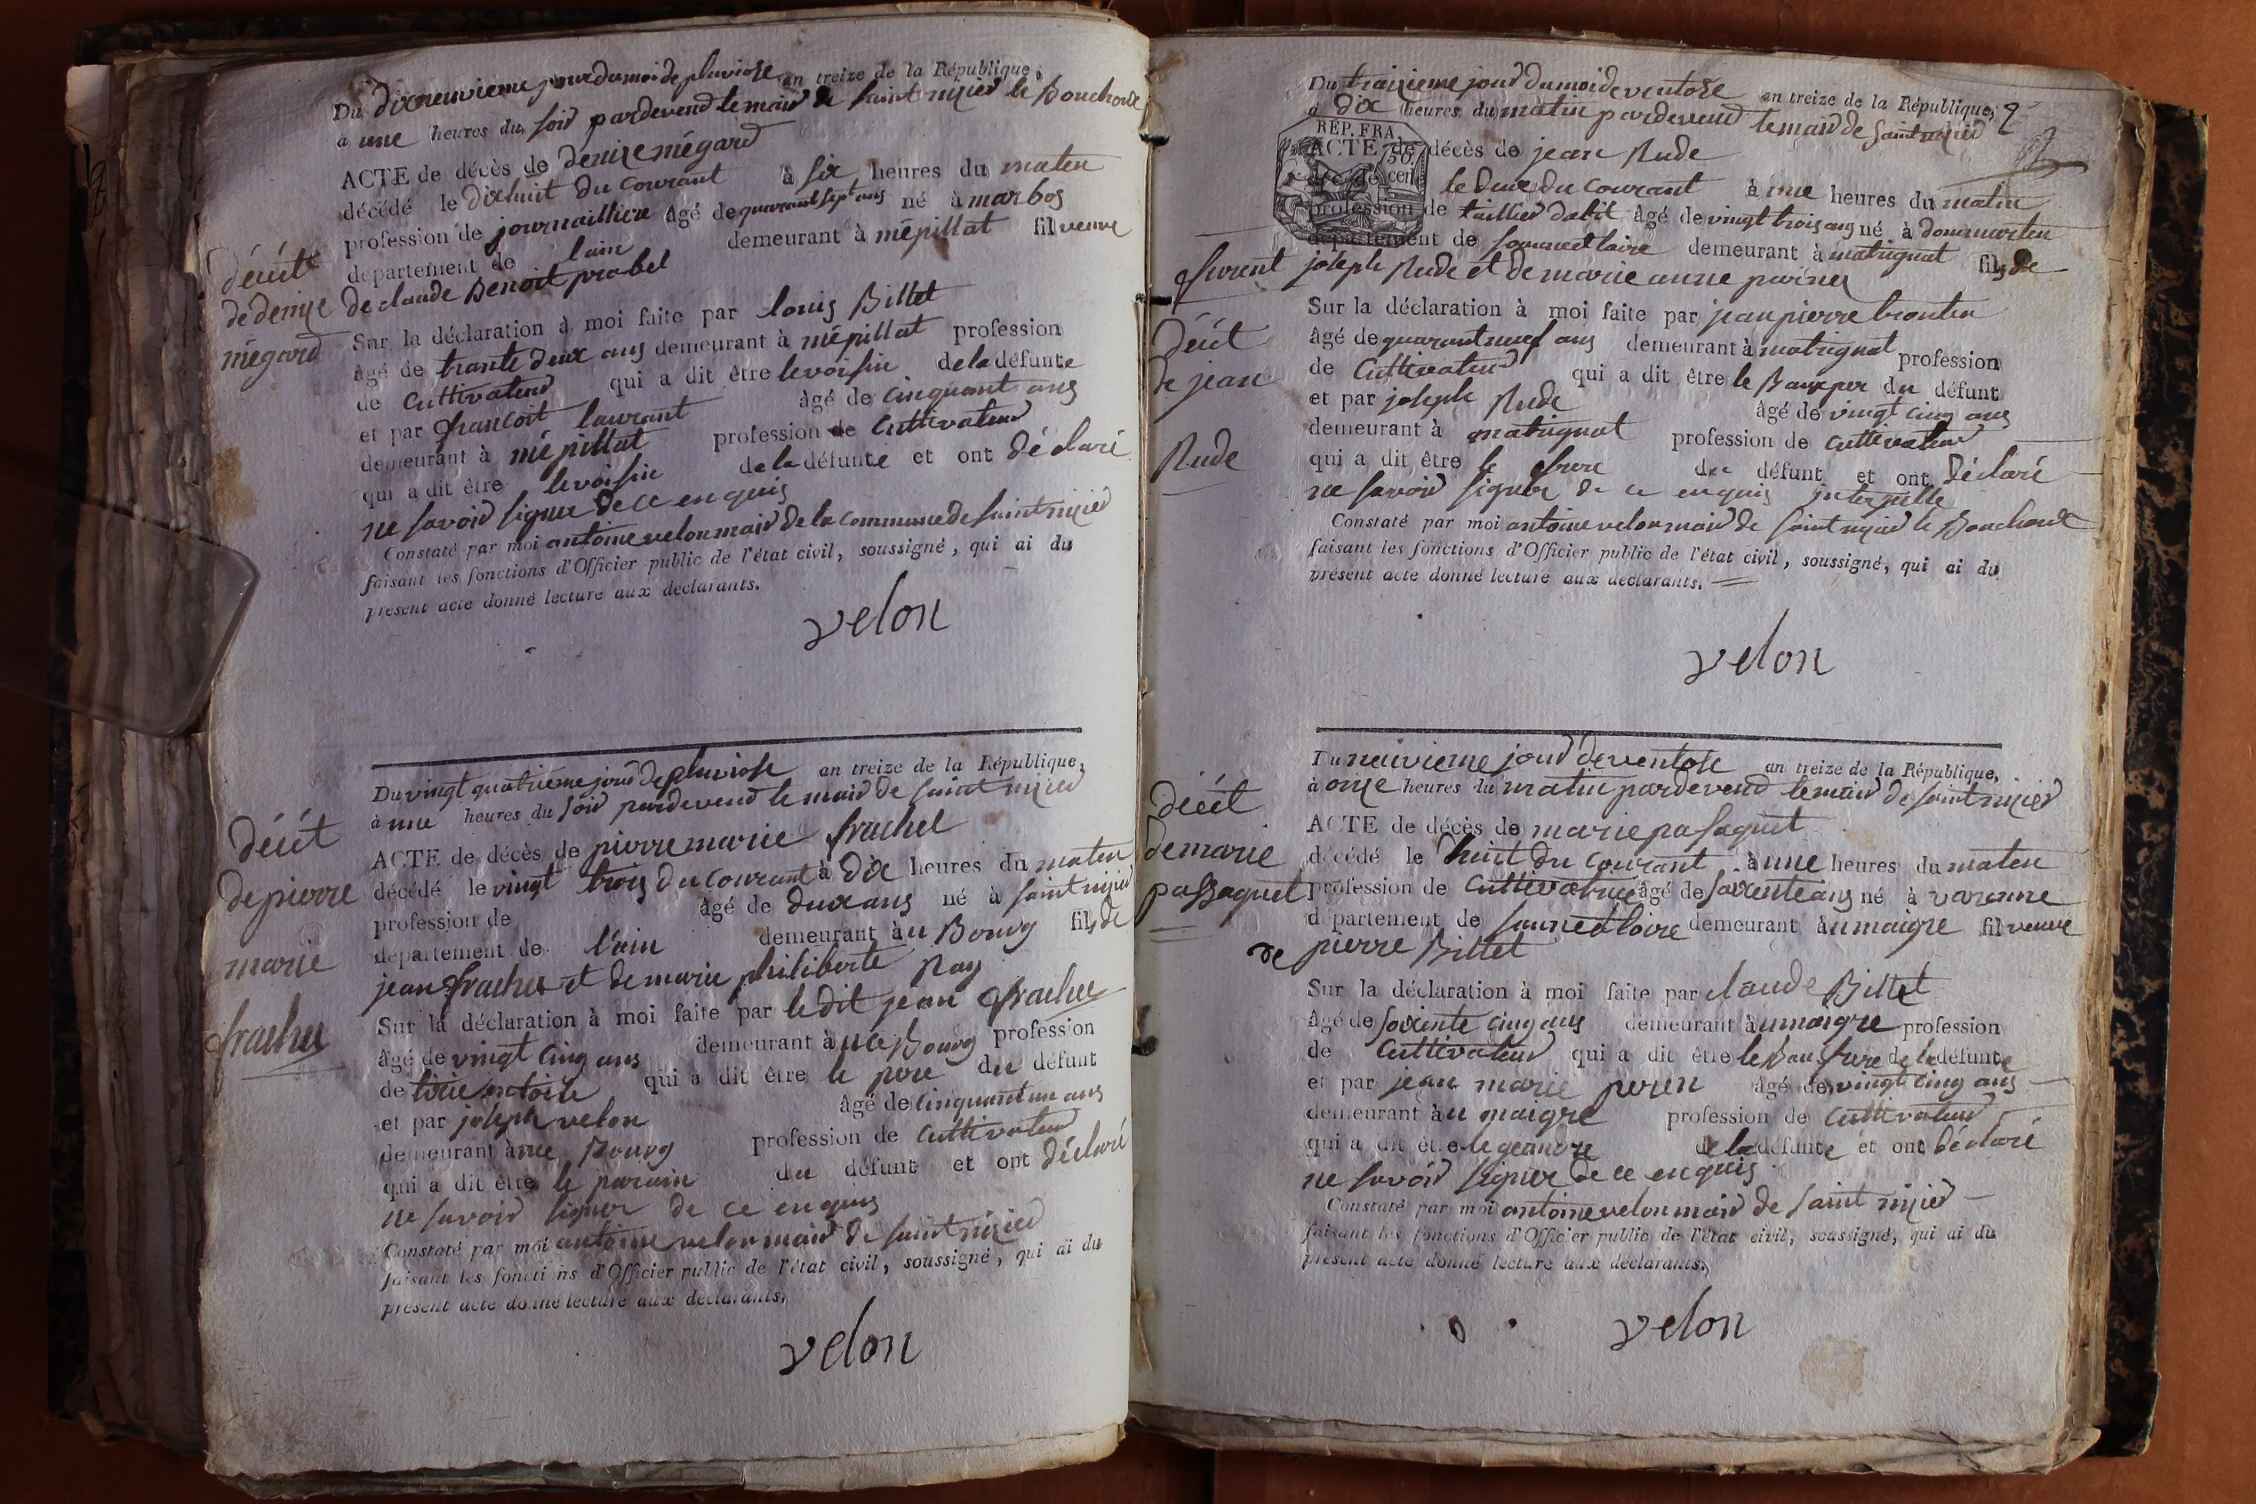 Du dixneuvieme jour du moi de pluviose an treize de la République,
a une heures du soir pardevend le maire de saint nizier le Bouchoux
ACTE de décès de denize mégard
décédé le dixhuit du courant à six heures du maten
profession de journailliere âgé de quarant sept ans né à marbos
département de lain demeurant à mépillat fil veuve
de claude Benoit probel
décéts
de denize
mégard
Sur la déclaration à moi faite par louis Billet
âgé de trante deux ans demeurant à mépillat profession
de Cultivateur qui a dit être le voisin de la défunte
et par francoit laurant âgé de cinquant ans
demeurant à mépillat profession de Cultivateur
qui a dit être le voisin de la défunte et ont déclaré
ne savoir signer de ce enquis
Constaté par moi antoine velon maire de la commune de saint nizier
faisant les fonctions d'Officier public de l'état civil, soussigné, qui ai du
présent acte donné lecture aux déclarants.
velon
Du vingt quatrieme jour de pluviose an treize de la République,
à une heures du soir pardevend le maire de saint nizier
ACTE de décès de pierre marie frachet
décédé le vingt trois du courant à dix heures du maten
profession de âgé de deux ans né à saint nizier
département de l'ain demeurant àu Bourg fils de
jean frachet et de marie philiberte Ray
décét
de pierre
marie
frachet
Sur la déclaration à moi faite par le dit jean frachet
âgé de vingt cinq ans demeurant à ue Bourg profession
de qui a dit être le pere du défunt
et par joseph velon âgé de cinquant un ans
demeurant à ue Bourg profession de Cultivateur
qui a dit être le parain du défunt et ont déclaré
ne savoir signer de ce enquis
Constaté par moi antoine velon maire de saint nizier
faisant les fonctions d'Officier public de l'état civil, soussigné, qui ai du
présent acte donné lecture aux déclarants.
velon
Du traizieme jour du moi de ventose an treize de la République, 2
a dix heures du matin pardevend le maire de saint nizier
RÉP. FRA.
50 cen
ACTE de décès de jean Rude
décédé le douze du courant à une heures du matin
profession de taillieur dabit âgé de vingt trois ans né à dommarten
département de saunnetloire demeurant à matrignat fils de
joseph Rude et de marie anne
furent
décét
de jean
Rude
Sur la déclaration à moi faite par jean pierre brontin
âgé de quarant neuf ans demeurant à matrignat profession
de Cultivateur qui a dit être le Beauper du défunt
et par joseph Rude âgé de vingt cinq ans
demeurant à matrignat profession de Cultivateur
qui a dit être le frere du défunt et ont déclaré
ne savoir signer de ce enquis interpellé
Constaté par moi antoine velon maire de saint nizier le Bouchoux
faisant les fonctions d'Officier public de l'état civil, soussigné, qui ai du
présent acte donné lecture aux déclarants.
velon
Du neuvieme jour de ventose an treize de la République,
à onze heures du matin pardevend le maire de saint nizier
ACTE de décès de marie pasaquet
décédé le huit du courant à une heures du maten
profession de Cultivatrice âgé de soixente ans né à varenne
département de saunetloire demeurant àu maigre fil veuve
de pierre Billet
décét
de marie
passaquet
Sur la déclaration à moi faite par claude Billet
âgé de soixente cinq ans demeurant àu maigre profession
de Cultivateur qui a dit être le Beau frere de la défunte
et par jean marie peren âgé de vingt cinq ans
demeurant àu maigre profession de Cultivateur
qui a dit être le geandre de la défunte et ont déclaré
ne savoir signer de ce enquis
Constaté par moi antoine velon maire de saint nizier
faisant les fonctions d'Officier public de l'état civil, soussigné, qui ai du
présent acte donné lecture aux déclarants.
velon